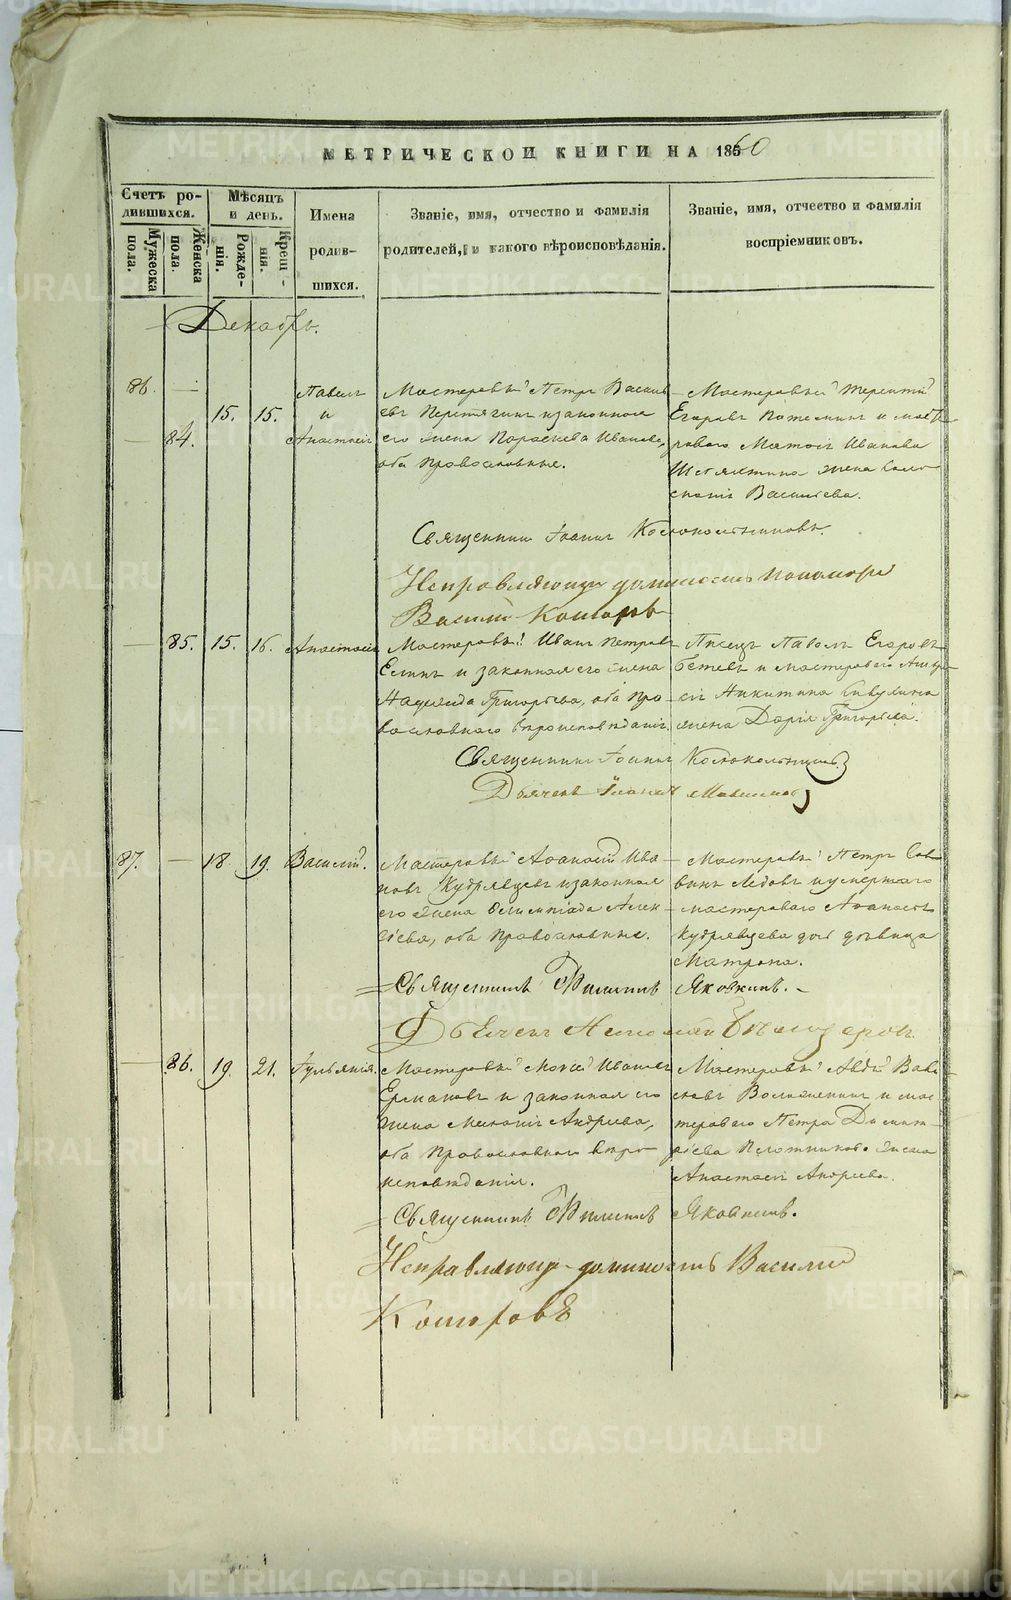 МЕТРИЧЕСКОЙ КНИГИ НА 1860
Счетъ ро-
дившихся.
Мужеска
пола.
Женска
пола.
Мѣсяцъ
и день.
Рожде-
нія.
Крещ-
нія.
Имена
родив-
шихся.
Званіе, имя, отчество и фамилія
родителей, и какого вѣроисповѣданія.
Званіе, имя, отчество и фамилія
воспріемниковъ.
Декабрь.
86. —
84.
15. 15.
Павелъ
и
Анастасія
Мастеровый Петръ Василь
евъ Перетягинъ и законная
его жена Параскева Иванова,
оба православные.
Мастеровый Терентій
Егоровъ Потеминъ и масте
роваго Иванова
жена
Васильева.
Священникъ Іоаннъ Колокольниковъ.
Исправляющій должность пономаря
Василій Комаровъ
— 85. 15. 16. Анастасія
Мастеровый Иванъ Петровъ
Еминъ и законная его жена
Надежда Григорьева, оба пра-
вославнаго вѣроисповѣданія.
Писецъ Павелъ Егоровъ
и мастероваго Андре
ея Никитина
жена Дарія Григорьева.
Священникъ Іоаннъ Колокольниковъ
Дьячекъ Іоаннъ
87. — 18. 19. Василій.
Мастеровый Афанасій Ива-
новъ Кудрявцевъ и законная
его жена Олимпіада Алек-
сѣева, оба православные.
Мастеровый Петръ Сав-
винъ Ледовъ и умершаго
мастероваго Афанасія
Кудрявцева дочь дѣвица
Матрона.
Священникъ Филиппъ Яковкинъ. —
Дьячекъ Николай
— 86. 19. 21. Іульянія.
Мастеровый Моисей Ивановъ
Ермаковъ и законная его
жена Меланія Андреева,
оба православнаго вѣро-
исповѣданія.
Мастеровый Авдѣй Вави-
ловъ и мас-
тероваго Петра Димит-
ріева Плотникова жена
Анастасія Андреева.
Священникъ Филиппъ Яковкинъ.
Исправляющій должность Василій
Комаровъ
METRIKI.GASO-URAL.RU